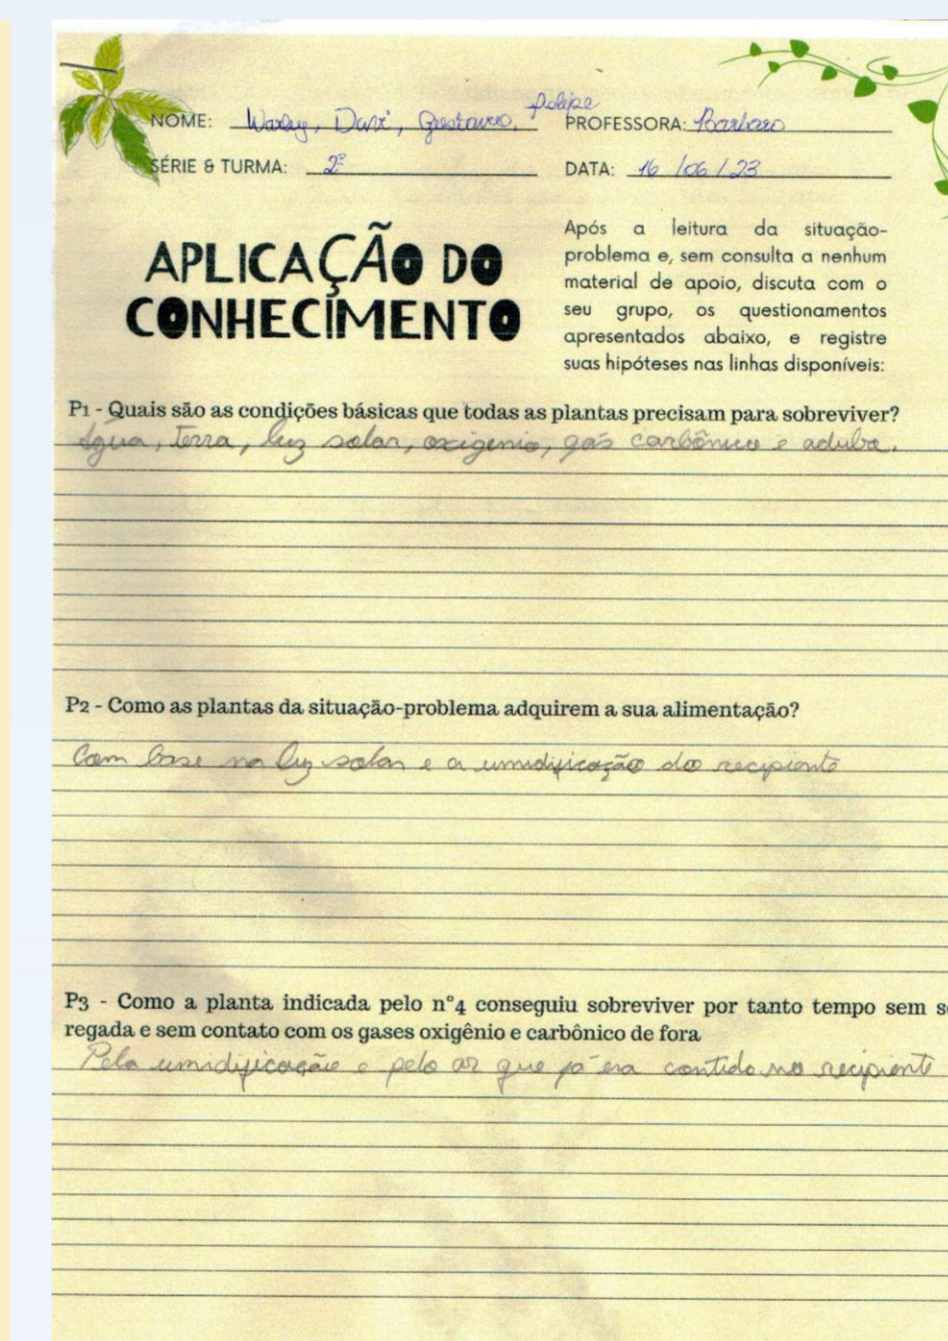 Felipe
NOME: Warley, Davi, Gustavo, PROFESSORA: Barbara
SÉRIE & TURMA: 2º DATA: 16/06/23
APLICAÇÃO DO
CONHECIMENTO
Após a leitura da situação-
problema e, sem consulta a nenhum
material de apoio, discuta com o
seu grupo, os questionamentos
apresentados abaixo, e registre
suas hipóteses nas linhas disponíveis:
P1 - Quais são as condições básicas que todas as plantas precisam para sobreviver?
Água, terra, luz solar, oxigenio, gás carbônico e aduba.
P2 - Como as plantas da situação-problema adquirem a sua alimentação?
Com base na luz solar e a umidificação do recipiente
P3 - Como a planta indicada pelo n°4 conseguiu sobreviver por tanto tempo sem
regada e sem contato com os gases oxigênio e carbônico de fora
Pela umidificação e pelo ar que já era contido no recipiente